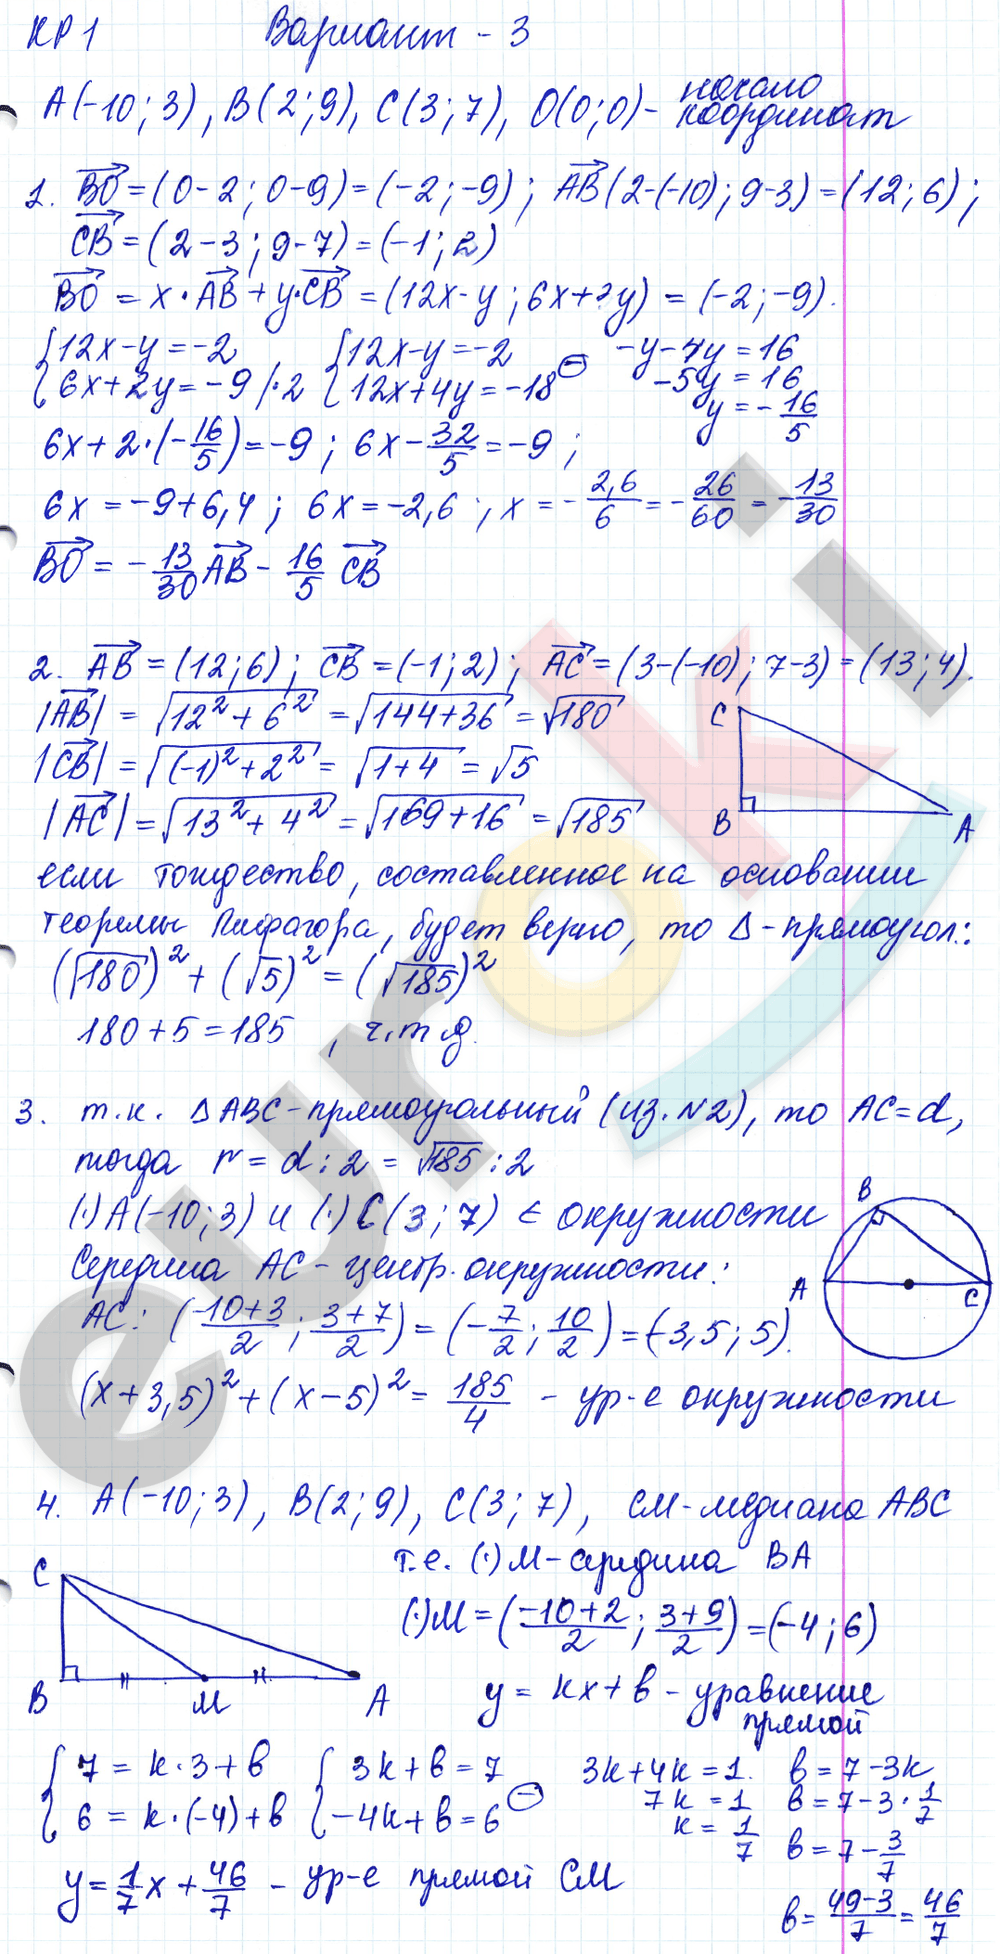 КР 1 Вариант - 3
A(-10; 3), B(2; 9), C(3; 7), O(0; 0) - начало координат
1. BO = (0-2; 0-9) = (-2; -9); AB(2-(-10); 9-3) = (12; 6);
CB = (2-3; 9-7) = (-1; 2)
BO = x·AB + y·CB = (12x-y; 6x+2y) = (-2; -9).
{12x-y=-2 {12x-y=-2 -y-4y=16
{6x+2y=-9 |·2 {12x+4y=-18 ⊖ -5y=16
y=-16/5
6x+2·(-16/5)=-9; 6x-32/5=-9;
6x=-9+6,4; 6x=-2,6; x=-2,6/6=-26/60=-13/30
BO=-13/30 AB-16/5 CB
2. AB=(12; 6); CB=(-1; 2); AC=(3-(-10); 7-3)=(13; 4).
|AB|=√(12²+6²)=√(144+36)=√180
C
|CB|=√((-1)²+2²)=√(1+4)=√5
|AC|=√(13²+4²)=√(169+16)=√185
B A
если тождество, составленное на основании
теоремы Пифагора, будет верно, то Δ-прямоугол.:
(√180)²+(√5)²=(√185)²
180+5=185, ч.т.д.
3. т.к. ΔABC-прямоугольный (из.N2), то AC=d,
тогда r=d:2=√185:2
(·)A(-10; 3) и (·)C(3; 7) ∈ окружности
B
Середина AC-центр.окружности:
A C
AC: (-10+3/2; 3+7/2)=(-7/2; 10/2)=(-3,5; 5).
(x+3,5)²+(x-5)²=185/4 - ур-е окружности
4. A(-10; 3), B(2; 9), C(3; 7), CM-медиана ABC
C
т.е. (·)M-середина BA
(·)M=(-10+2/2; 3+9/2)=(-4; 6)
B M A
y=kx+b-уравнение прямой
{7=k·3+b {3k+b=7 3k+4k=1. b=7-3k
{6=k·(-4)+b {-4k+b=6 ⊖ 7k=1 b=7-3·1/7
k=1/7 b=7-3/7
y=1/7x+46/7 - ур-е прямой CM
b=49-3/7=46/7
euroki